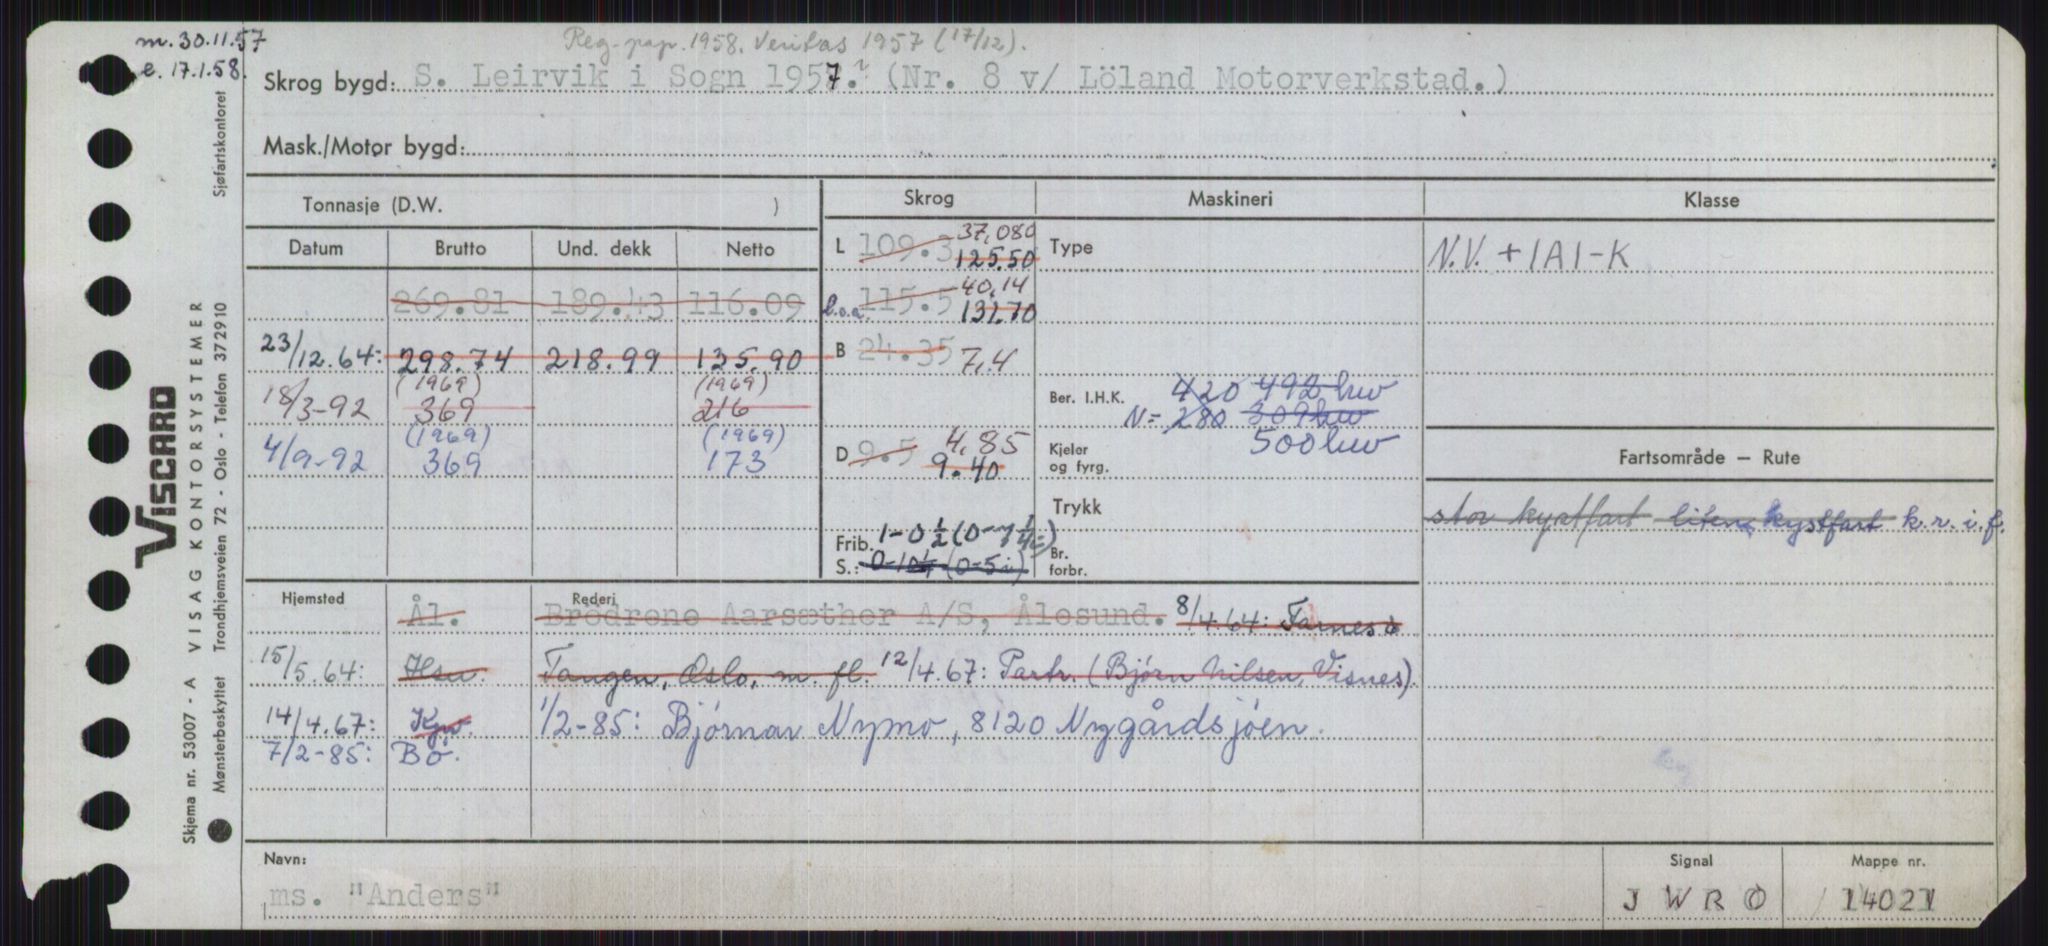 m. 30.11.57
e. 17.1.58.
Reg. pap. 1958. Veritas 1957 (17/12).
Skrog bygd: S. Leirvik i Sogn 1957. (Nr. 8 v/ Löland Motorverkstad.)
Mask./Motor bygd:
Tonnasje (D.W. )
Datum Brutto Und. dekk Netto
269.81 189.43 116.09
23/12.64: 298.74 218.99 125.90
(1969) (1969)
18/3-92 369 216
(1969) (1969)
4/9-92 369 173
Skrog
L 109.3 37,080
125.50
l.o.a. 115.5 40,14
131.70
B 24.35 7,4
D 9.5 4,85
9.40
Frib. 1-0½ (0-7¼=)
S.: 0-10¼ (0-5=)
Maskineri
Type
Ber. I.H.K. 420 492 hw
N= 280 309 hw
500 hw
Kjeler
og fyrg.
Trykk
Br.
forbr.
Klasse
N.V. +1A1-K
Fartsområde – Rute
stor kystfart liten kystfart k.r.i.f.
Hjemsted Rederi
Ål. Brödrene Aarsæther A/S, Ålesund. 8/4.64: Farnes &
15/5.64: Hsu. Tangen, Oslo, m. fl. 12/4.67: Partr. (Bjørn Nilsen, Visnes).
14/4.67: 1/2-85: Bjørnar Nymo, 8120 Nygårdsjøen.
7/2-85: Bø.
Navn: Signal Mappe nr.
ms. "Anders" J W R O 14021
VISCARD
Skjema nr. 53007 - A VISAG KONTORSYSTEMER
Mønsterbeskyttet Trondhjemsveien 72 - Oslo - Telefon 372910
Sjøfartskontoret